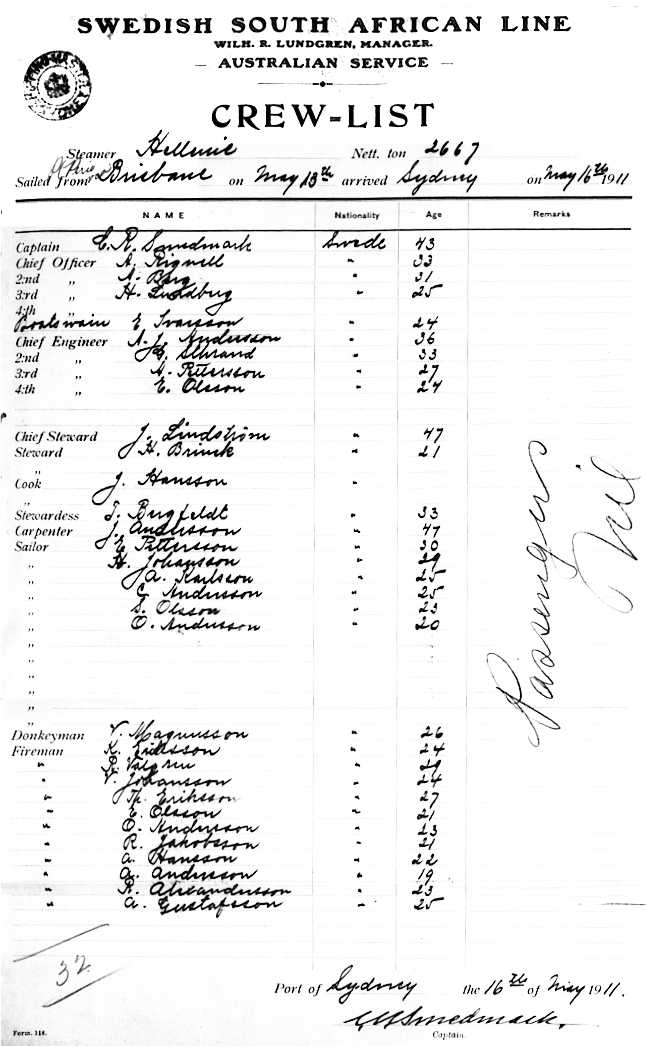 SWEDISH SOUTH AFRICAN LINE
WILH. R. LUNDGREN, MANAGER.
— AUSTRALIAN SERVICE —
CREW-LIST
Steamer Hellenic Nett. ton 2667
Sailed from Brisbane on May 13th arrived Sydney on May 16th 1911
NAME Nationality Age Remarks
Captain C. R. Smedmark Swede 43
Chief Officer A. Rignell " 33
2:nd " A. Berg " 31
3:rd " H. Lundberg " 25
4:th "
Boatswain E Ivarsson " 24
Chief Engineer A. J. Andersson " 36
2:nd " G. Schrand " 33
3:rd " A. Pettersson " 27
4:th " E. Olsson " 24
Chief Steward J. Lindström " 47
Steward H. Brinck " 21
"
Cook J. Hansson "
"
Stewardess T. Bergfeldt " 33
Carpenter J. Andersson " 47
Sailor E Pettersson " 30
" H. Johansson " 29
" A. Karlsson " 25
" C Andersson " 25
" S. Olsson " 23
" O. Andersson " 20
"
"
"
"
"
"
Donkeyman V. Magnusson " 26
Fireman K. Eriksson " 24
" Valgren " 29
" V. Johansson " 24
" Th. Eriksson " 27
" E. Olsson " 21
" O. Andersson " 23
" R. Jakobsson " 21
" A. Hansson " 22
" A. Andersson " 19
" R. Alexandersson " 23
" A. Gustafsson " 25
Passengers Nil
32
Port of Sydney the 16th of May 1911.
C R Smedmark.
Captain.
Form. 118.